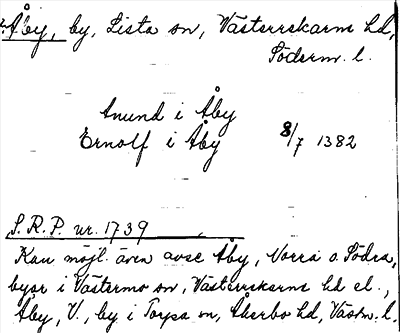 Åby, by, Lista sn, Västerrekarne hd,
Söderm. l.
Anund i Åby
Ernolf i Åby 8/7 1382
S.R.P. nr. 1739
Kan möjl. även avse Åby, Norra o. Södra,
byar i Västermo sn, Västerrekarne hd el.,
Åby, V., by i Torpa sn, Åkerbo hd, Västm. l.